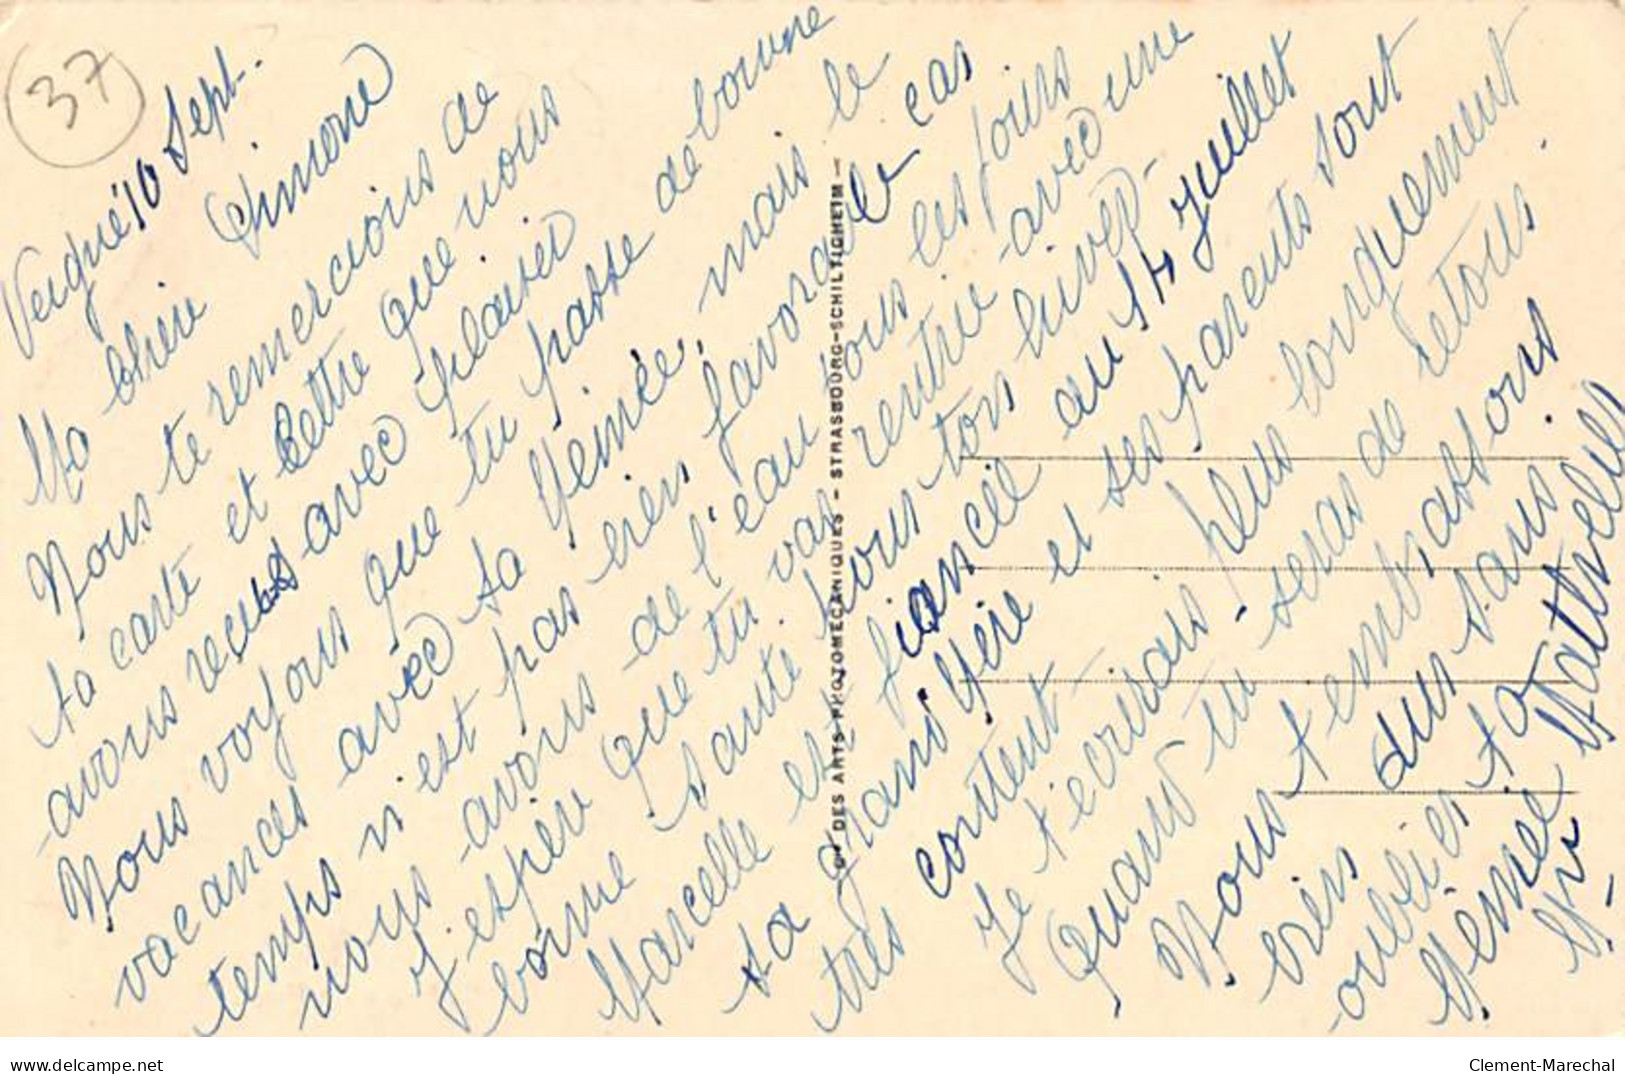 37
10 Sept.
Ma Chère Simone
Nous te remercions de
ta carte et lettre que nous
avons reçues avec plaisir
Nous voyons que tu passe de bonne
vacances avec ta Mémée, mais le
temps n'est pas bien favorable cas
nous avons de l'eau tous les jours
J'espère que tu vas rentrée avec une
bonne santé pour ton hiver-
Marcelle est fiancée au 14 Juillet
ta grand Mère et ses parents sont
très content-
Je t'ecrirais plus longuement
quand tu seras de retour.
Nous t'embrassons
bien dur sans
oublier ta
Mémée Mathieu
Cie DES ARTS PHOTOMÉCANIQUES - STRASBOURG-SCHILTIGHEIM
www.delcampe.net
Clement-Marechal